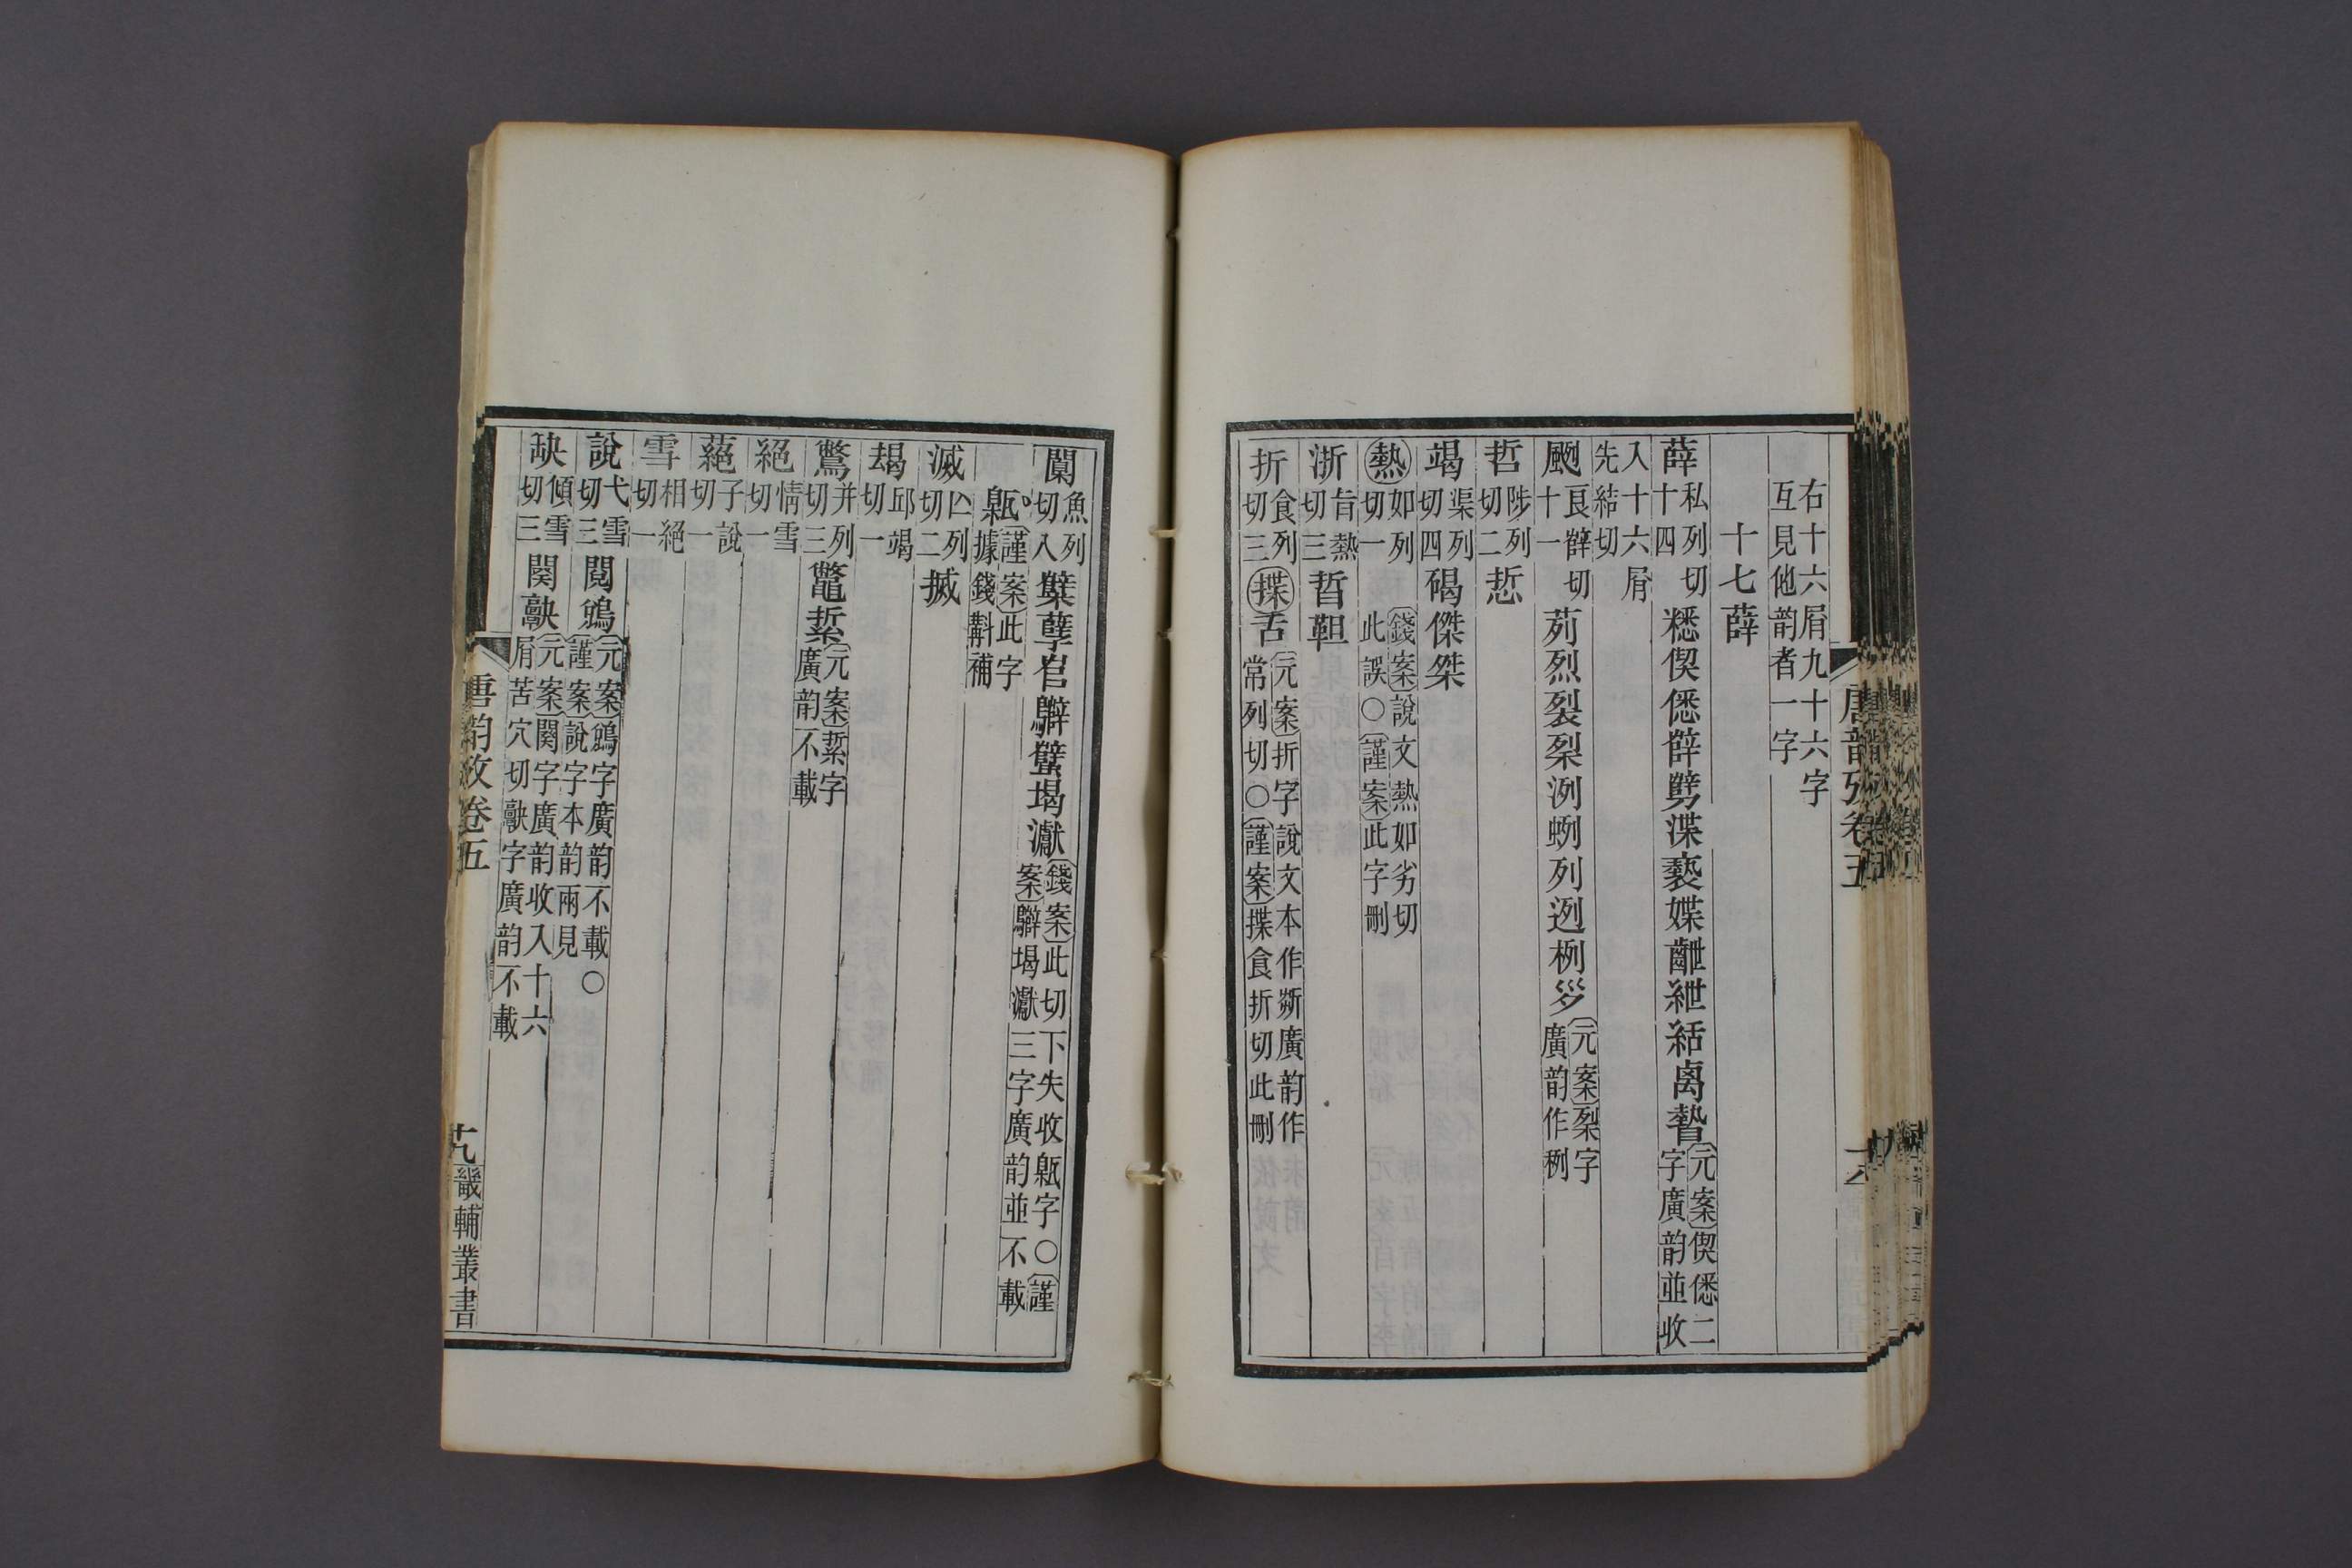 右十六屑九十六字
互見他韵者一字
十七薛
薛私列切十四𥻦偰僁辥㔎渫褻媟齛紲絬禼暬元案偰僁二字廣韵並收
入十六屑先結切
颲良辥切十一茢烈裂䅀洌蛚列迾栵𡿪元案䅀字廣韵作䅀
哲陟列切二悊
竭渠列切四碣傑桀
熱如列切一錢案說文熱如劣切此誤〇謹案此字刪
浙旨熱切三晢靼
折食列切三揲舌元案折字說文本作㪿廣韵作常列切〇謹案揲食折切此刪
唐韵攷卷五
闑魚列切八糱孽𡴎㜸蠥堨瀐錢案此切下失收臲字〇謹案㜸堨瀐三字廣韵並不載
臲謹案此字據錢斠補
滅亡列切二搣
朅邱竭切一
鷩并列切三鼈𦃇元案𦃇字廣韵不載
絕情雪切一
蕝子說切一
雪相絕切一
說弋雪切三閱䳇元案䳇字廣韵不載〇謹案說字本韵兩見
缺傾雪切三闋𣤯元案闋字廣韵收入十六屑苦穴切𣤯字廣韵不載
唐韵攷卷五
十九
畿輔叢書